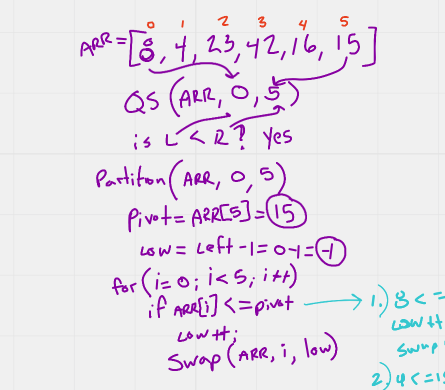 0 1 2 3 4 5
ARR = [8, 4, 23, 42, 16, 15]
QS (ARR, 0, 5)
is L < R? Yes
Partition (ARR, 0, 5)
Pivot = ARR[5] = 15
Low = Left - 1 = 0 - 1 = -1
for (i = 0; i < 5; i++)
if ARR[i] <= pivot
low++;
Swap (ARR, i, low)
1.) 8 <=
low++
Swap
2.) 4 <= 1